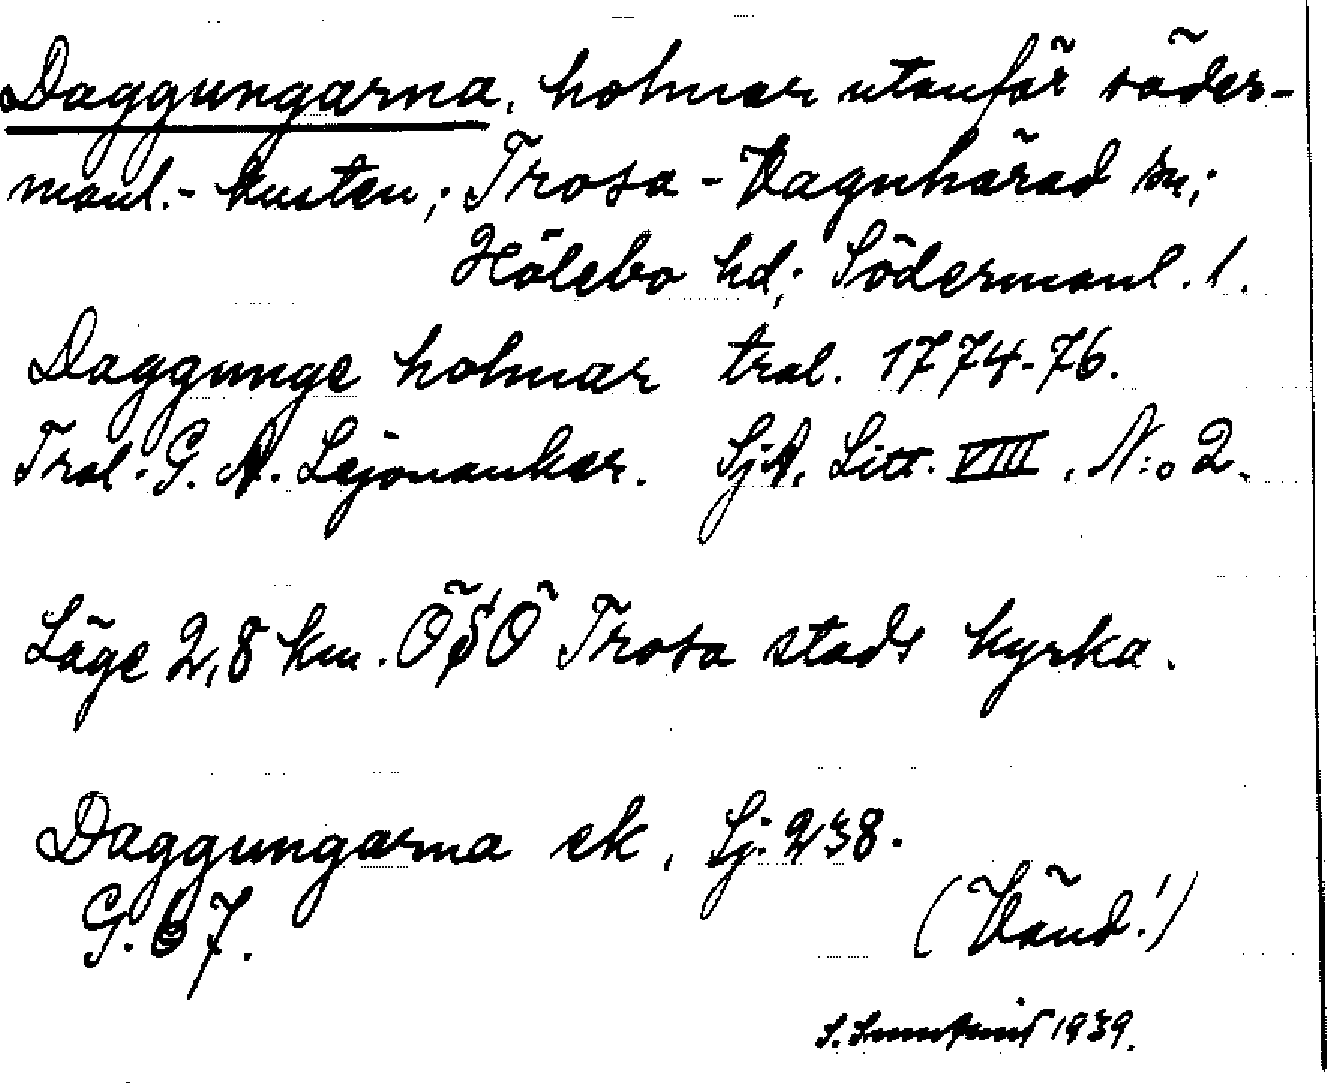 Daggungarna, holmar utanför söder-
manl.- kusten; Trosa - Vagnhärad sn;
Hölebo hd; Södermanl. l.
Daggunge holmar tral. 1774-76.
Tral. G. A. Lejonanker. SjA. Litt. VIII. N:o 2.
Läge 2,8 km. ÖSÖ Trosa stads kyrka.
Daggungarna ek, Sj. 238.
G. 67.
(Vänd!)
S. 1939.